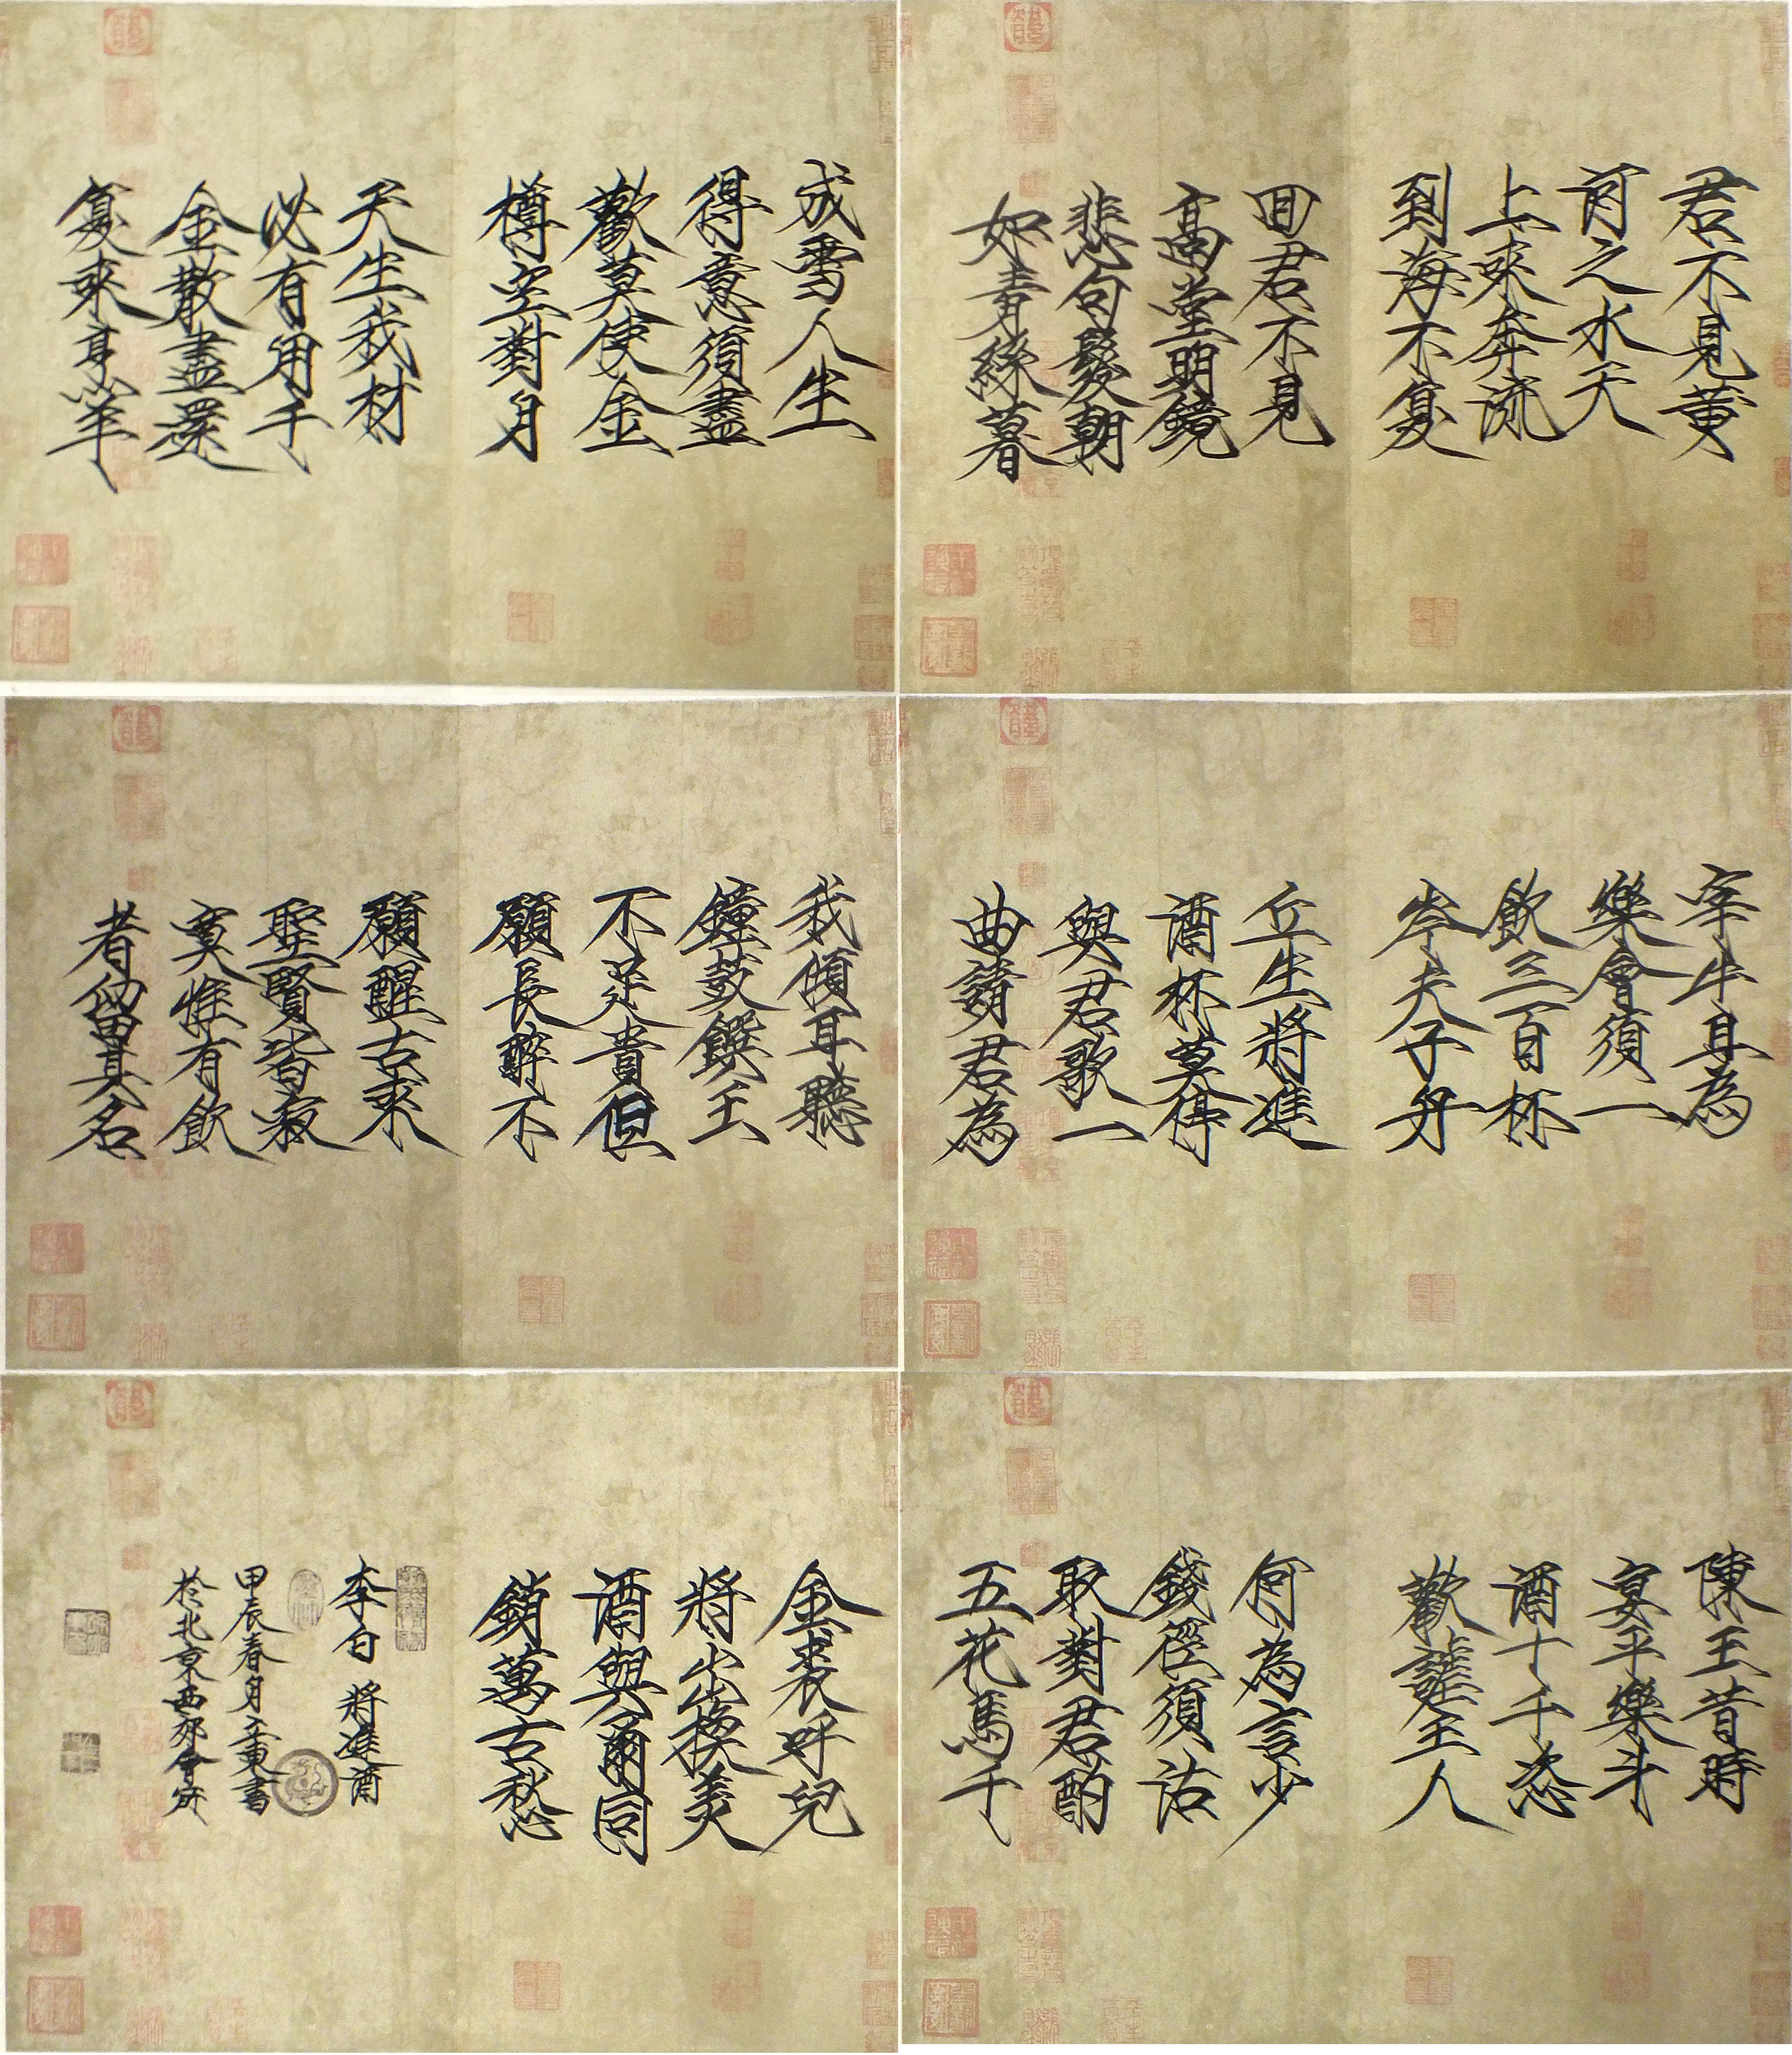 君不見黃
河之水天
上來奔流
到海不复
回君不見
高堂明鏡
悲白髮朝
如青絲暮
成雪人生
得意須盡
歡莫使金
樽空對月
天生我材
必有用千
金散盡還
复來烹羊
宰牛且為
樂會須一
飲三百杯
岑夫子丹
丘生將進
酒杯莫停
與君歌一
曲請君為
我傾耳聽
鐘鼓饌玉
不足貴但
願長醉不
願醒古來
聖賢皆寂
寞惟有飲
者留其名
陳王昔時
宴平樂斗
酒十千恣
歡謔主人
何為言少
錢徑須沽
取對君酌
五花馬千
金裘呼兒
將出換美
酒與爾同
銷萬古愁
李白 將進酒
甲辰春月立東書
於北京西郊會